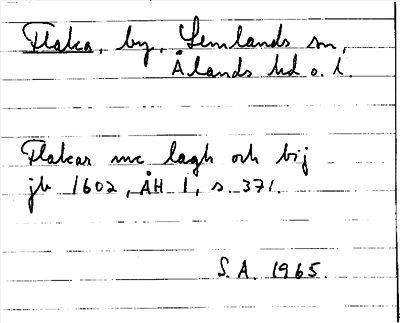 Flaka, by, Lemlands sn,
Ålands hd o. l.
Flakar mc lagh och bij
jb 1602, ÅH 1, s. 371.
S.A. 1965.